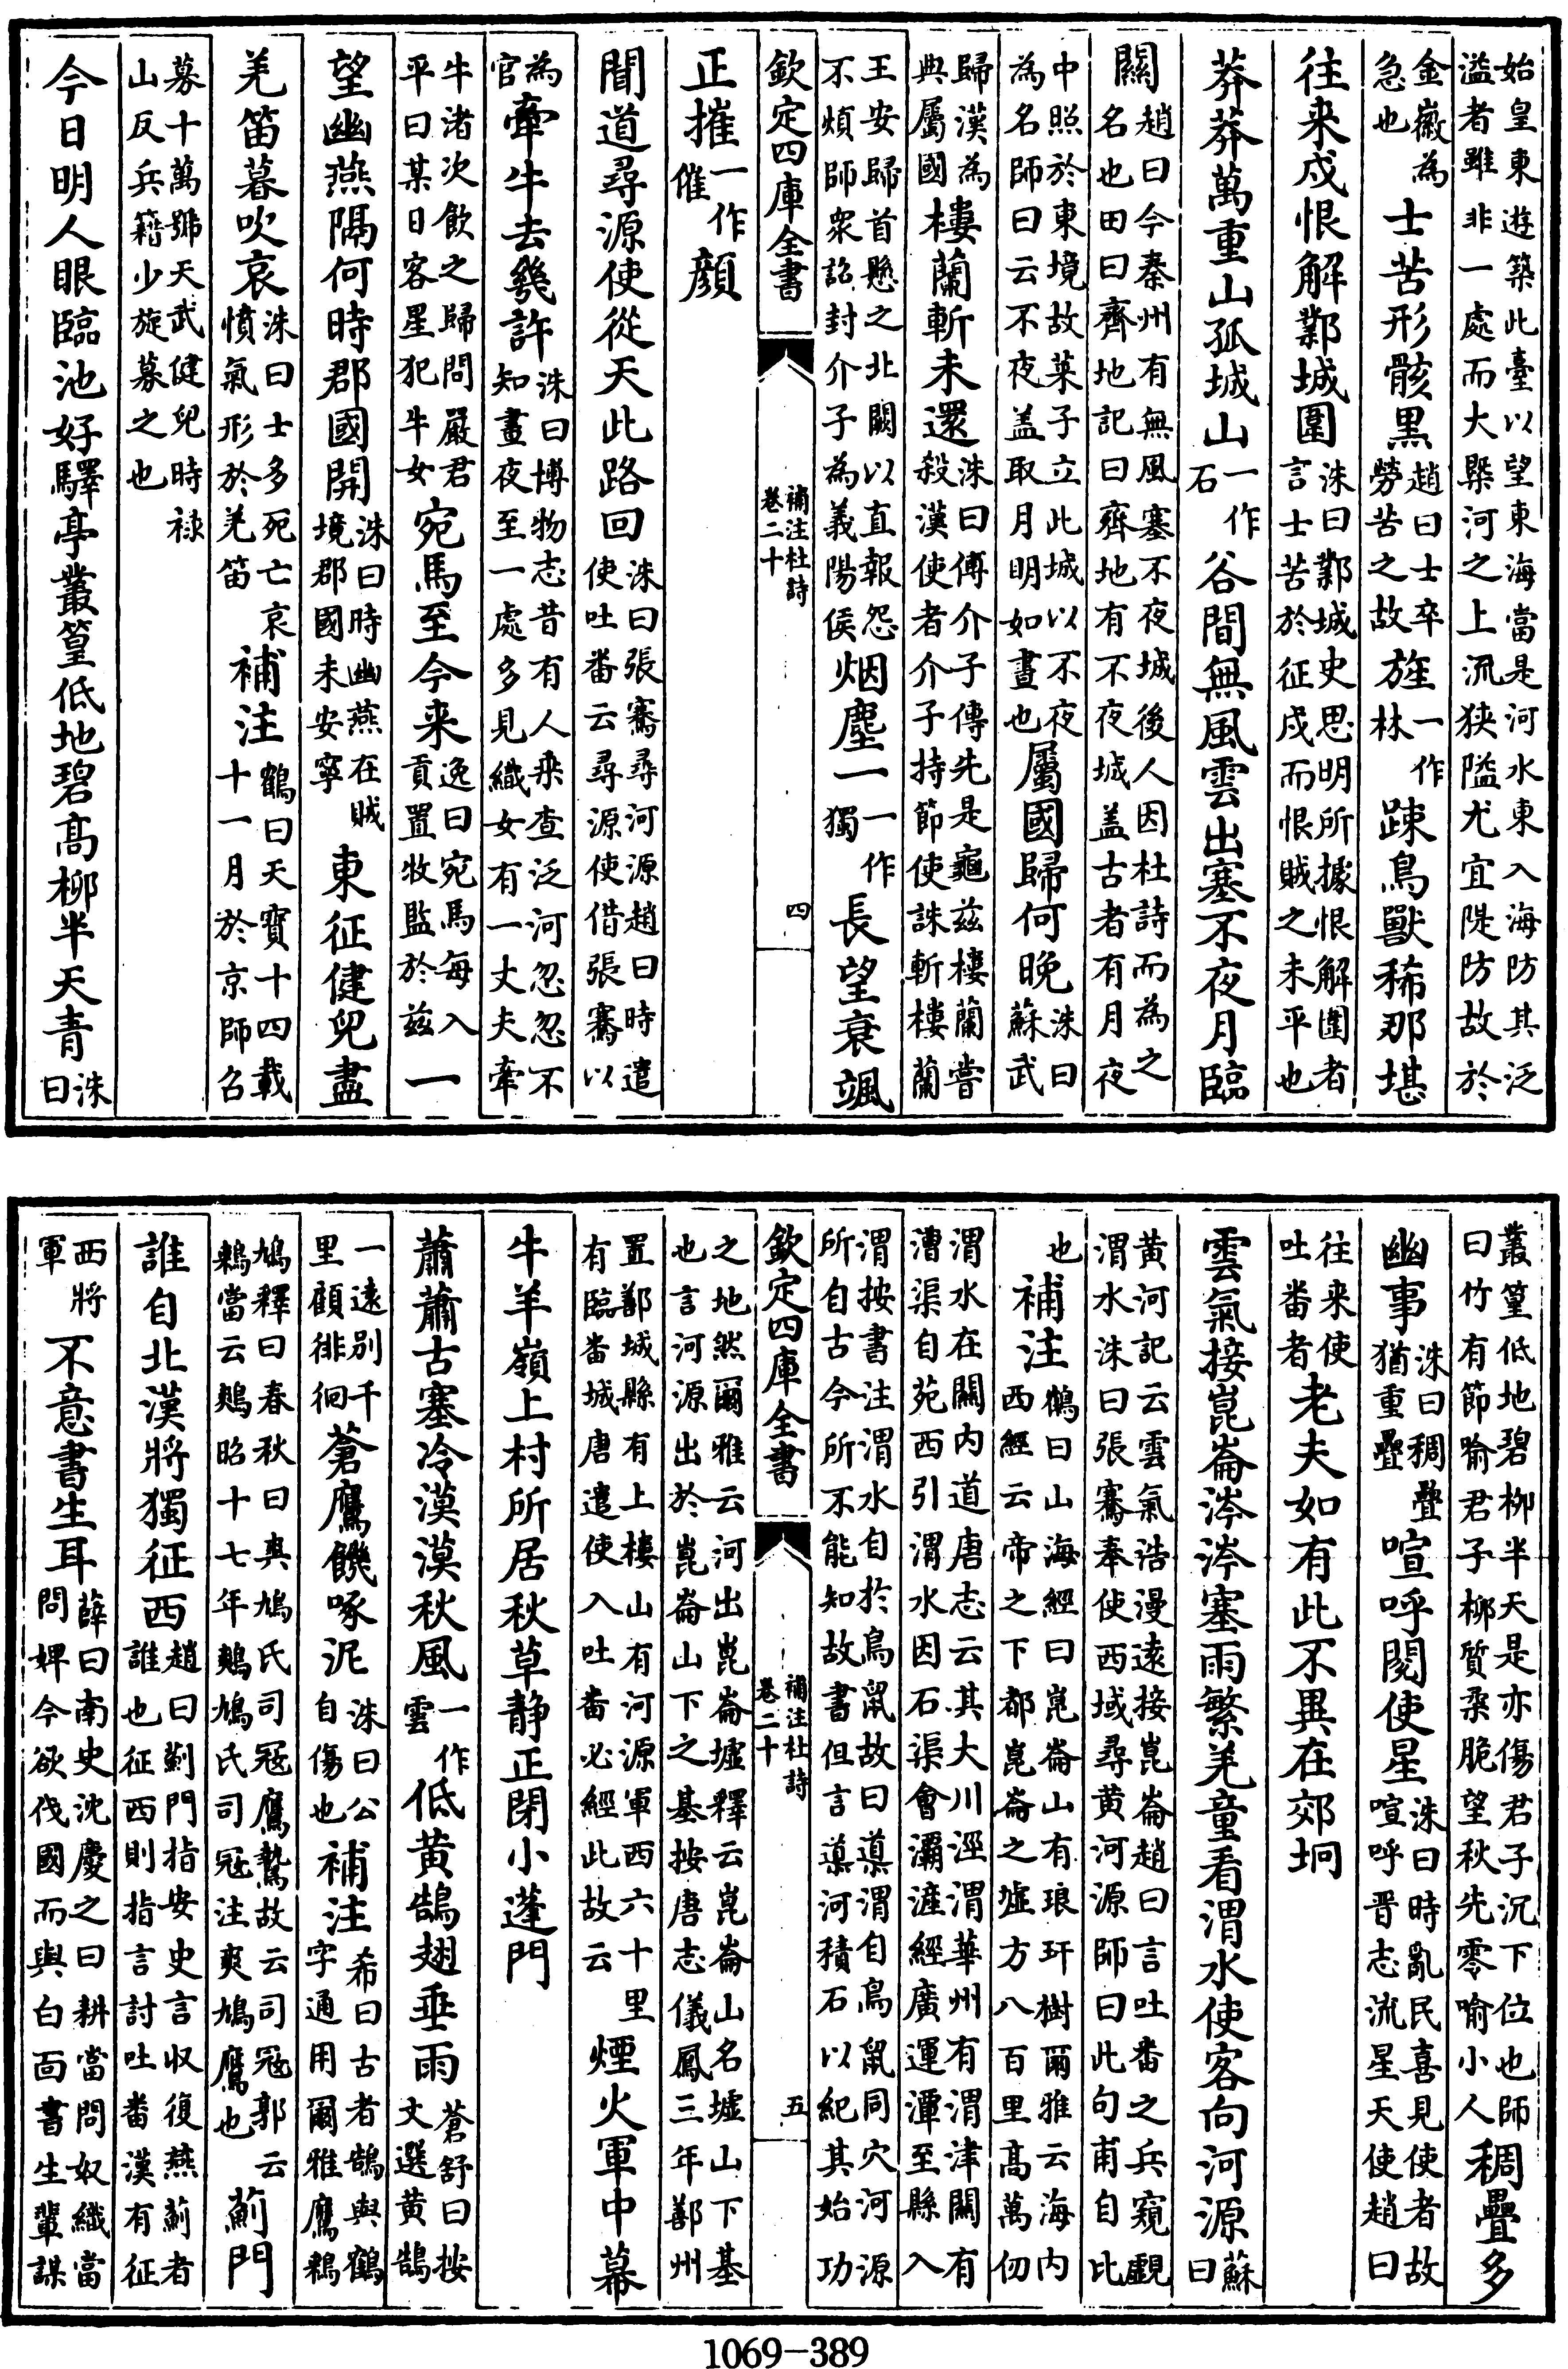 始皇東遊築此臺以望東海當是河水東入海防其泛溢者雖非一處而大槩河之上流狹隘尤宜陡防故於
金徽為急也士苦形骸黑趙曰士卒勞苦之故旌一作林疎鳥獸稀那堪
往来戍恨解鄴城圍洙曰鄴城史思明所據恨解圍者言士苦於征戍而恨賊之未平也
莽莽萬重山孤城山一作石谷間無風雲出塞不夜月臨
關趙曰今秦州有無風塞不夜城後人因杜詩而為之名也田曰齊地記曰齊地有不夜城盖古者有月夜
中照於東境故莱子立此城以不夜為名師曰云不夜盖取月明如晝也屬國歸何晚洙曰蘇武
歸漢為典屬國樓蘭斬未還洙曰傅介子傳先是龜兹樓蘭嘗殺漢使者介子持節使誅斬樓蘭
王安歸首懸之北闕以直報怨不煩師衆詔封介子為義陽侯烟塵一一作獨長望衰颯
欽定四庫全書 補注杜詩 卷二十 四
正摧一作催顔
聞道尋源使從天此路回洙曰張騫尋河源趙曰時遣使吐畨云尋源使借張騫以
為官牽牛去幾許洙曰博物志昔有人乘查泛河忽忽不知晝夜至一處多見織女有一丈夫牽
牛渚次飲之歸問嚴君平曰某日客星犯牛女宛馬至今来逸曰宛馬每入貢置牧監於兹一
望幽燕隔何時郡國開洙曰時幽燕在賊境郡國未安寧東征健兒盡
羌笛暮吹哀洙曰士多死亡哀憤氣形於羌笛補注鶴曰天寶十四載十一月於京師召
募十萬號天武健兒時禄山反兵籍少旋募之也
今日明人眼臨池好驛亭叢篁低地碧高栁半天青洙曰
叢篁低地碧栁半天是亦傷君子沉下位也師曰竹有節喻君子栁質柔脆望秋先零喻小人稠疊多
幽事洙曰稠疊猶重疊喧呼閱使星洙曰時亂民喜見使者故喧呼晋志流星天使趙曰
往来使吐畨者老夫如有此不異在郊坰
雲氣接崑崙涔涔塞雨繁羌童看渭水使客向河源蘇曰
黄河記云雲氣浩漫遠接崑崙趙曰言吐畨之兵窺覰渭水洙曰張騫奉使西域尋黄河源師曰此句甫自比
也補注鶴曰山海經曰崑崙山有琅玕樹爾雅云海内西經云帝之下都崑崙之墟方八百里高萬仞
渭水在關内道唐志云其大川涇渭華州有渭津關有漕渠自苑西引渭水因石渠會灞滻經廣運潭至縣入
渭按書注渭水自於鳥鼠故曰導渭自鳥鼠同穴河源所自古今所不能知故書但言導河積石以紀其始功
欽定四庫全書 補注杜詩 卷二十 五
之地然爾雅云河出崑崙墟釋云崑崙山名墟山下基也言河源出於崑崙山下之基按唐志儀鳳三年鄯州
置鄯城縣有上樓山有河源軍西六十里有臨畨城唐遣使入吐畨必經此故云煙火軍中幕
牛羊嶺上村所居秋草静正閉小蓬門
蕭蕭古塞冷漠漠秋風一作雲低黄鵠翅垂雨蒼舒曰按文選黄鵠
一遠别千里顧徘徊蒼鷹饑啄泥洙曰公自傷也補注希曰古者鵠與鶴字通用爾雅鷹鶆
鳩釋曰春秋曰爽鳩氏司冦鷹鷙故云司冦郭云鶆當云鷞昭十七年鷞鳩氏司冦注爽鳩鷹也薊門
誰自北漢將獨征西趙曰薊門指安史言收復燕薊者誰也征西則指言討吐畨漢有征
西將軍不意書生耳薛曰南史沈慶之曰耕當問奴織當問婢今欲伐國而與白面書生輩謀
1069-389